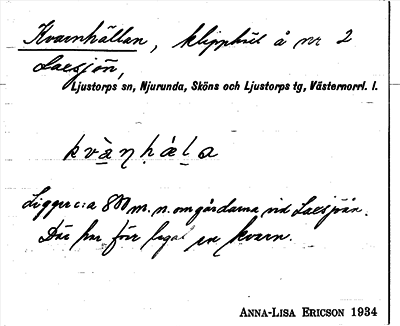 Kvarnhällan, klipphäll å nr 2
Laxsjön,
Ljustorps sn, Njurunda, Sköns och Ljustorps tg, Västernorrl. l.
kvà̱ṇḥàḻa
Ligger c:a 800 m. n. om gårdarna vid Laxsjön.
Där har förr legat en kvarn.
ANNA-LISA ERICSON 1934